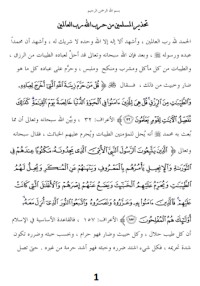 بسم الله الرحمن الرحيم
تحذير المسلمين من حرب الله رب العالمين
الحمد لله رب العالمين ، وأشهد أن لا إله إلا الله وحده لا شريك له ، وأشهد أن محمداً
عبده ورسوله ﷺ ، وبعد فإن الله سبحانه وتعالى قد أحل لعباده الطيبات من الرزق ،
والطيبات من كل مأكل ومشرب ومنكح وملبس ، وحرّم على عباده كل ما هو
ضار وخبيث من ذلك ، فقال ﴿ قُلْ مَنْ حَرَّمَ زِينَةَ اللَّهِ الَّتِي أَخْرَجَ لِعِبَادِهِ
وَالطَّيِّبَاتِ مِنَ الرِّزْقِ قُلْ هِيَ لِلَّذِينَ آمَنُوا فِي الْحَيَاةِ الدُّنْيَا خَالِصَةً يَوْمَ الْقِيَامَةِ كَذَلِكَ
نُفَصِّلُ الْآيَاتِ لِقَوْمٍ يَعْلَمُونَ ﴾ الأعراف: ٣٢ ، وبيّن الله سبحانه وتعالى أن مما
بُعث به محمد ﷺ أنه يُحل للمؤمنين الطيبات ويُحرم عليهم الخبائث ، فقال سبحانه
وتعالى ﴿ الَّذِينَ يَتَّبِعُونَ الرَّسُولَ النَّبِيَّ الْأُمِّيَّ الَّذِي يَجِدُونَهُ مَكْتُوبًا عِنْدَهُمْ فِي
التَّوْرَاةِ وَالْإِنْجِيلِ يَأْمُرُهُمْ بِالْمَعْرُوفِ وَيَنْهَاهُمْ عَنِ الْمُنْكَرِ وَيُحِلُّ لَهُمُ
الطَّيِّبَاتِ وَيُحَرِّمُ عَلَيْهِمُ الْخَبَائِثَ وَيَضَعُ عَنْهُمْ إِصْرَهُمْ وَالْأَغْلَالَ الَّتِي كَانَتْ
عَلَيْهِمْ فَالَّذِينَ آمَنُوا بِهِ وَعَزَّرُوهُ وَنَصَرُوهُ وَاتَّبَعُوا النُّورَ الَّذِي أُنْزِلَ مَعَهُ
أُولَئِكَ هُمُ الْمُفْلِحُونَ ﴾ الأعراف: ١٥٧ ، فالقاعدة الأساسية في الإسلام
أن كل طيب حلال ، وكل خبيث وضار فهو حرام ، وبحسب خبثه وضرره تكون
شدة تحريمه ، فكل شيء اشتد ضرره وخبثه فهو أشد حرمة من غيره . حتى تصل
1